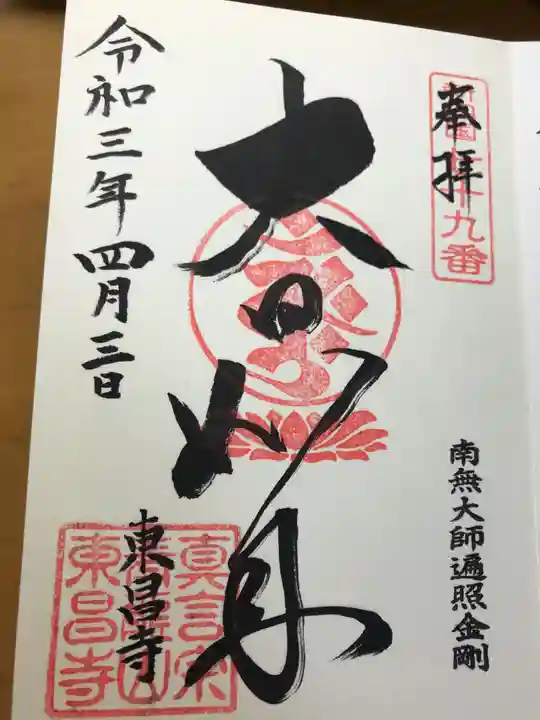 奉拝
七十九番
南無大師遍照金剛
大日如来
令和三年四月三日
東昌寺
真言宗
東昌寺